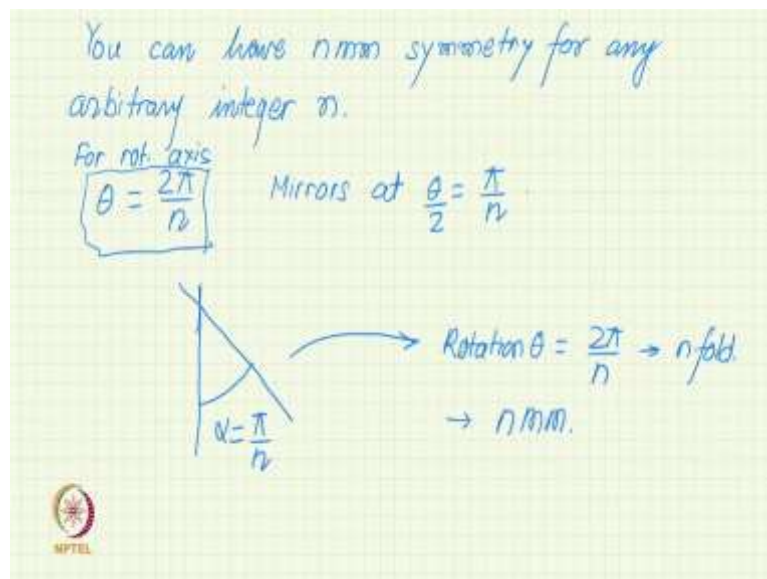 You can have nmm symmetry for any
arbitrary integer n.
For rot. axis
θ = 2π/n Mirrors at θ/2 = π/n
Rotation θ = 2π/n → n fold.
α = π/n
→ nmm.
NPTEL